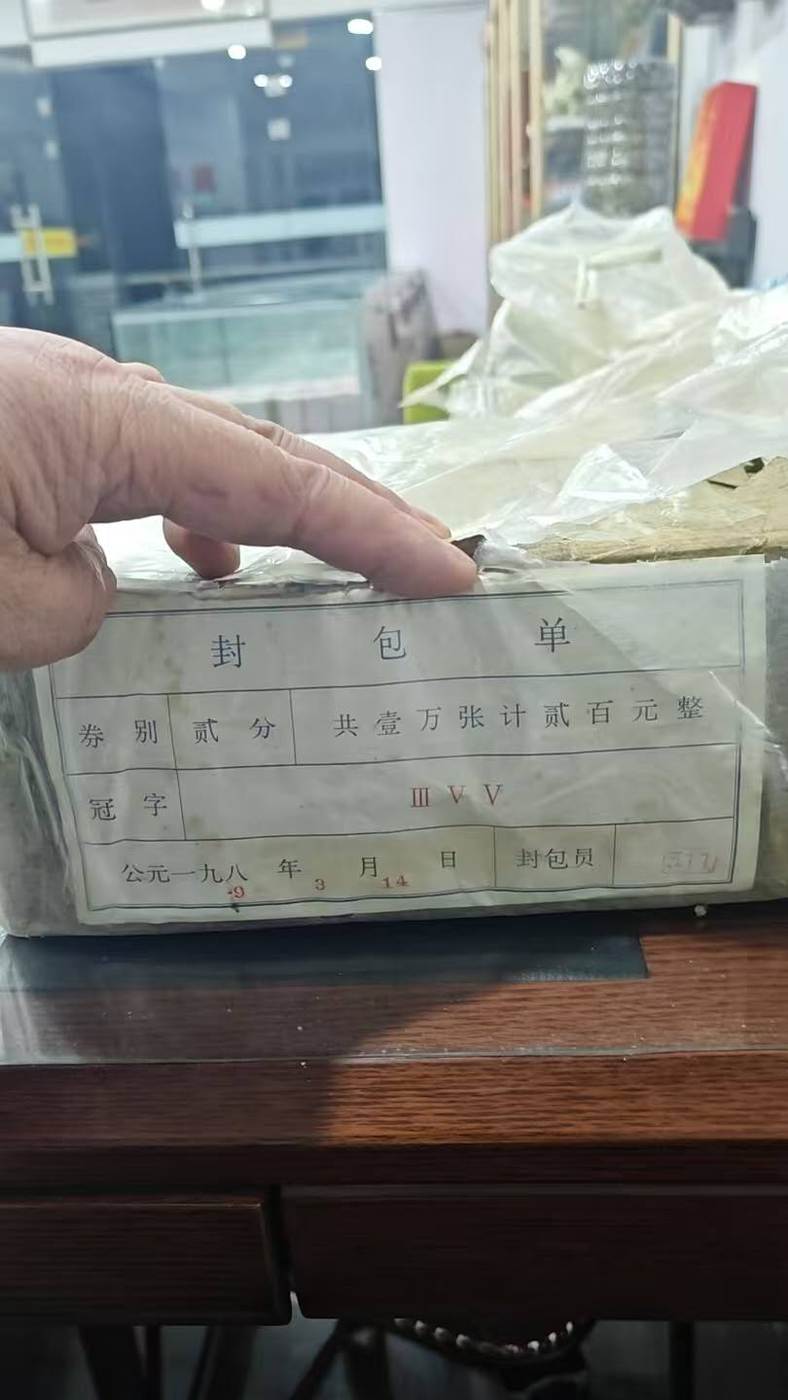 封包单
券别 贰分 共壹万张计贰百元整
冠字 ⅢⅤⅤ
公元一九八9年3月14日 封包员